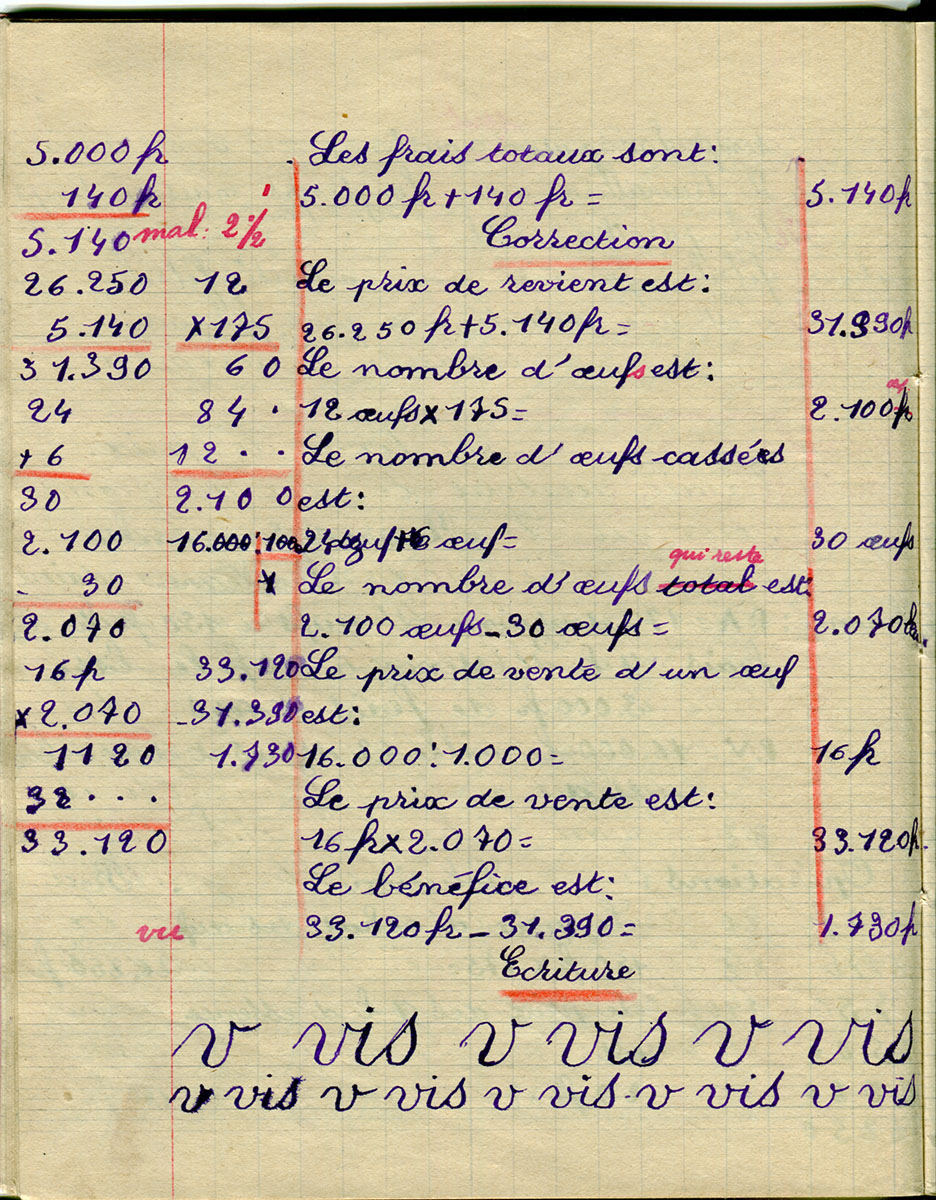 5.000 fr . Les frais totaux sont:
140 fr 5.000 fr + 140 fr = 5.140 fr
5.140 mal: 2 1/2 Correction
26.250 12 Le prix de revient est:
5.140 x175 26.250 fr + 5.140 fr = 31.390 fr
31.390 60 Le nombre d'œufs est:
24 84 . 12 œufs x 175 = 2.100 œufs
+ 6 12 . . Le nombre d'œufs cassés
30 2.100 est:
2.100 16.000 : 1000 œuf = 30 œufs
- 30 Le nombre d'œufs total qui reste est:
2.070 2.100 œufs - 30 œufs = 2.070
16 fr 33.120 Le prix de vente d'un œuf
x 2.070 - 31.390 est:
1120 1.730 16.000 : 1.000 = 16 fr
32 . . . Le prix de vente est:
33.120 16 fr x 2.070 = 33.120 fr
Le bénéfice est:
vu 33.120 fr - 31.390 = 1.730 fr
Ecriture
v vis v vis v vis
v vis v vis v vis v vis v vis